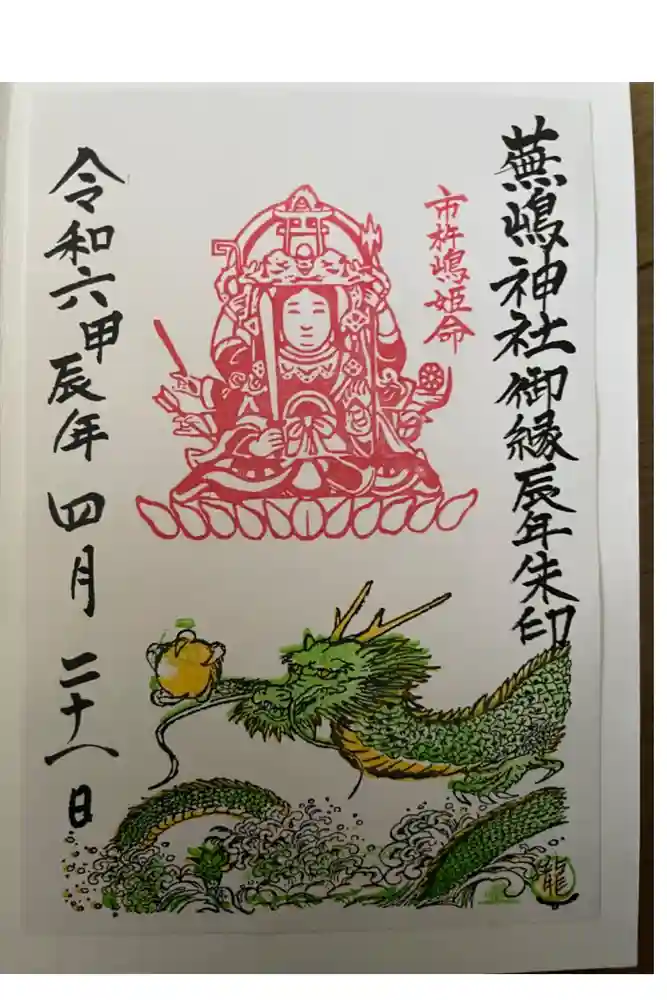 蕪嶋神社御縁辰年朱印
市杵嶋姫命
令和六甲辰年四月二十一日
龍